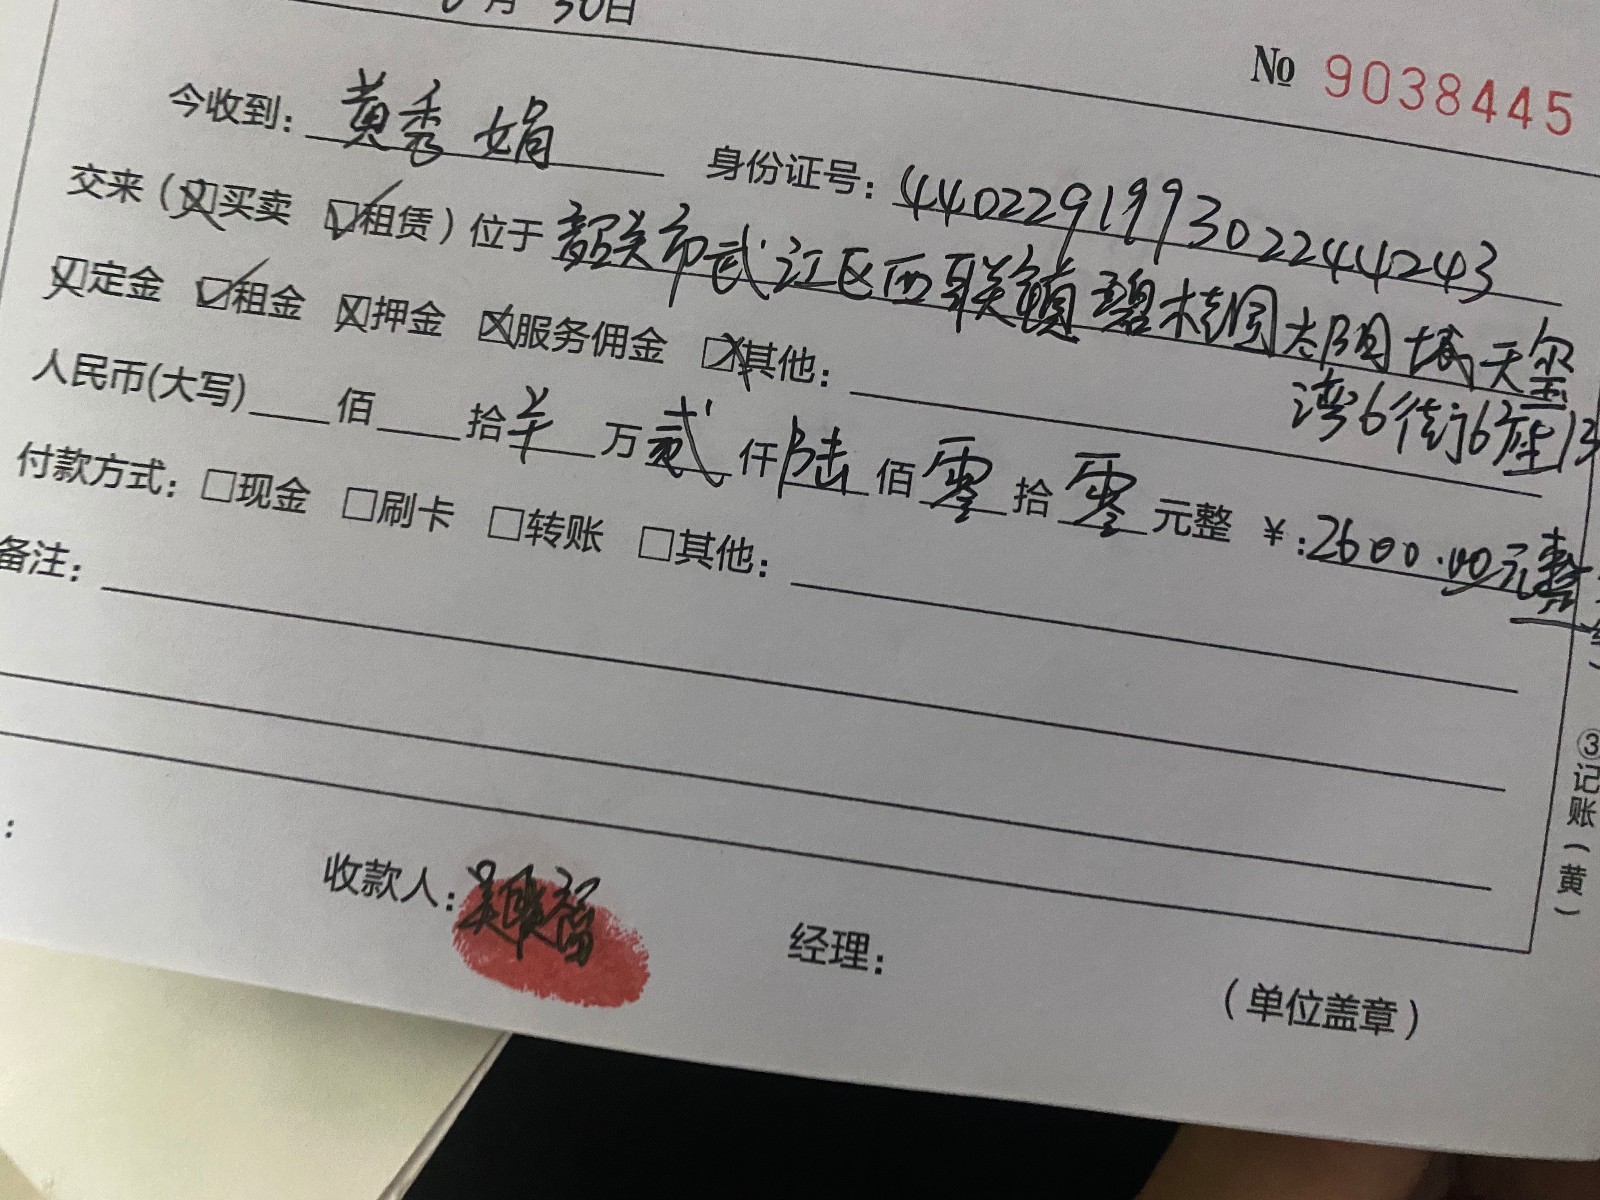 月30日
№ 9038445
今收到：黄秀娟 身份证号：440229199302244243
交来（☒买卖 ☑租赁）位于韶关市武江区西联镇碧桂园太阳城天玺
湾6街6座13
☒定金 ☑租金 ☒押金 ☒服务佣金 ☒其他：
人民币(大写) 佰 拾 万贰仟陆佰零拾零元整 ￥:2600.00元整
付款方式：□现金 □刷卡 □转账 □其他：
备注：
③记账（黄）
收款人： 经理：
（单位盖章）